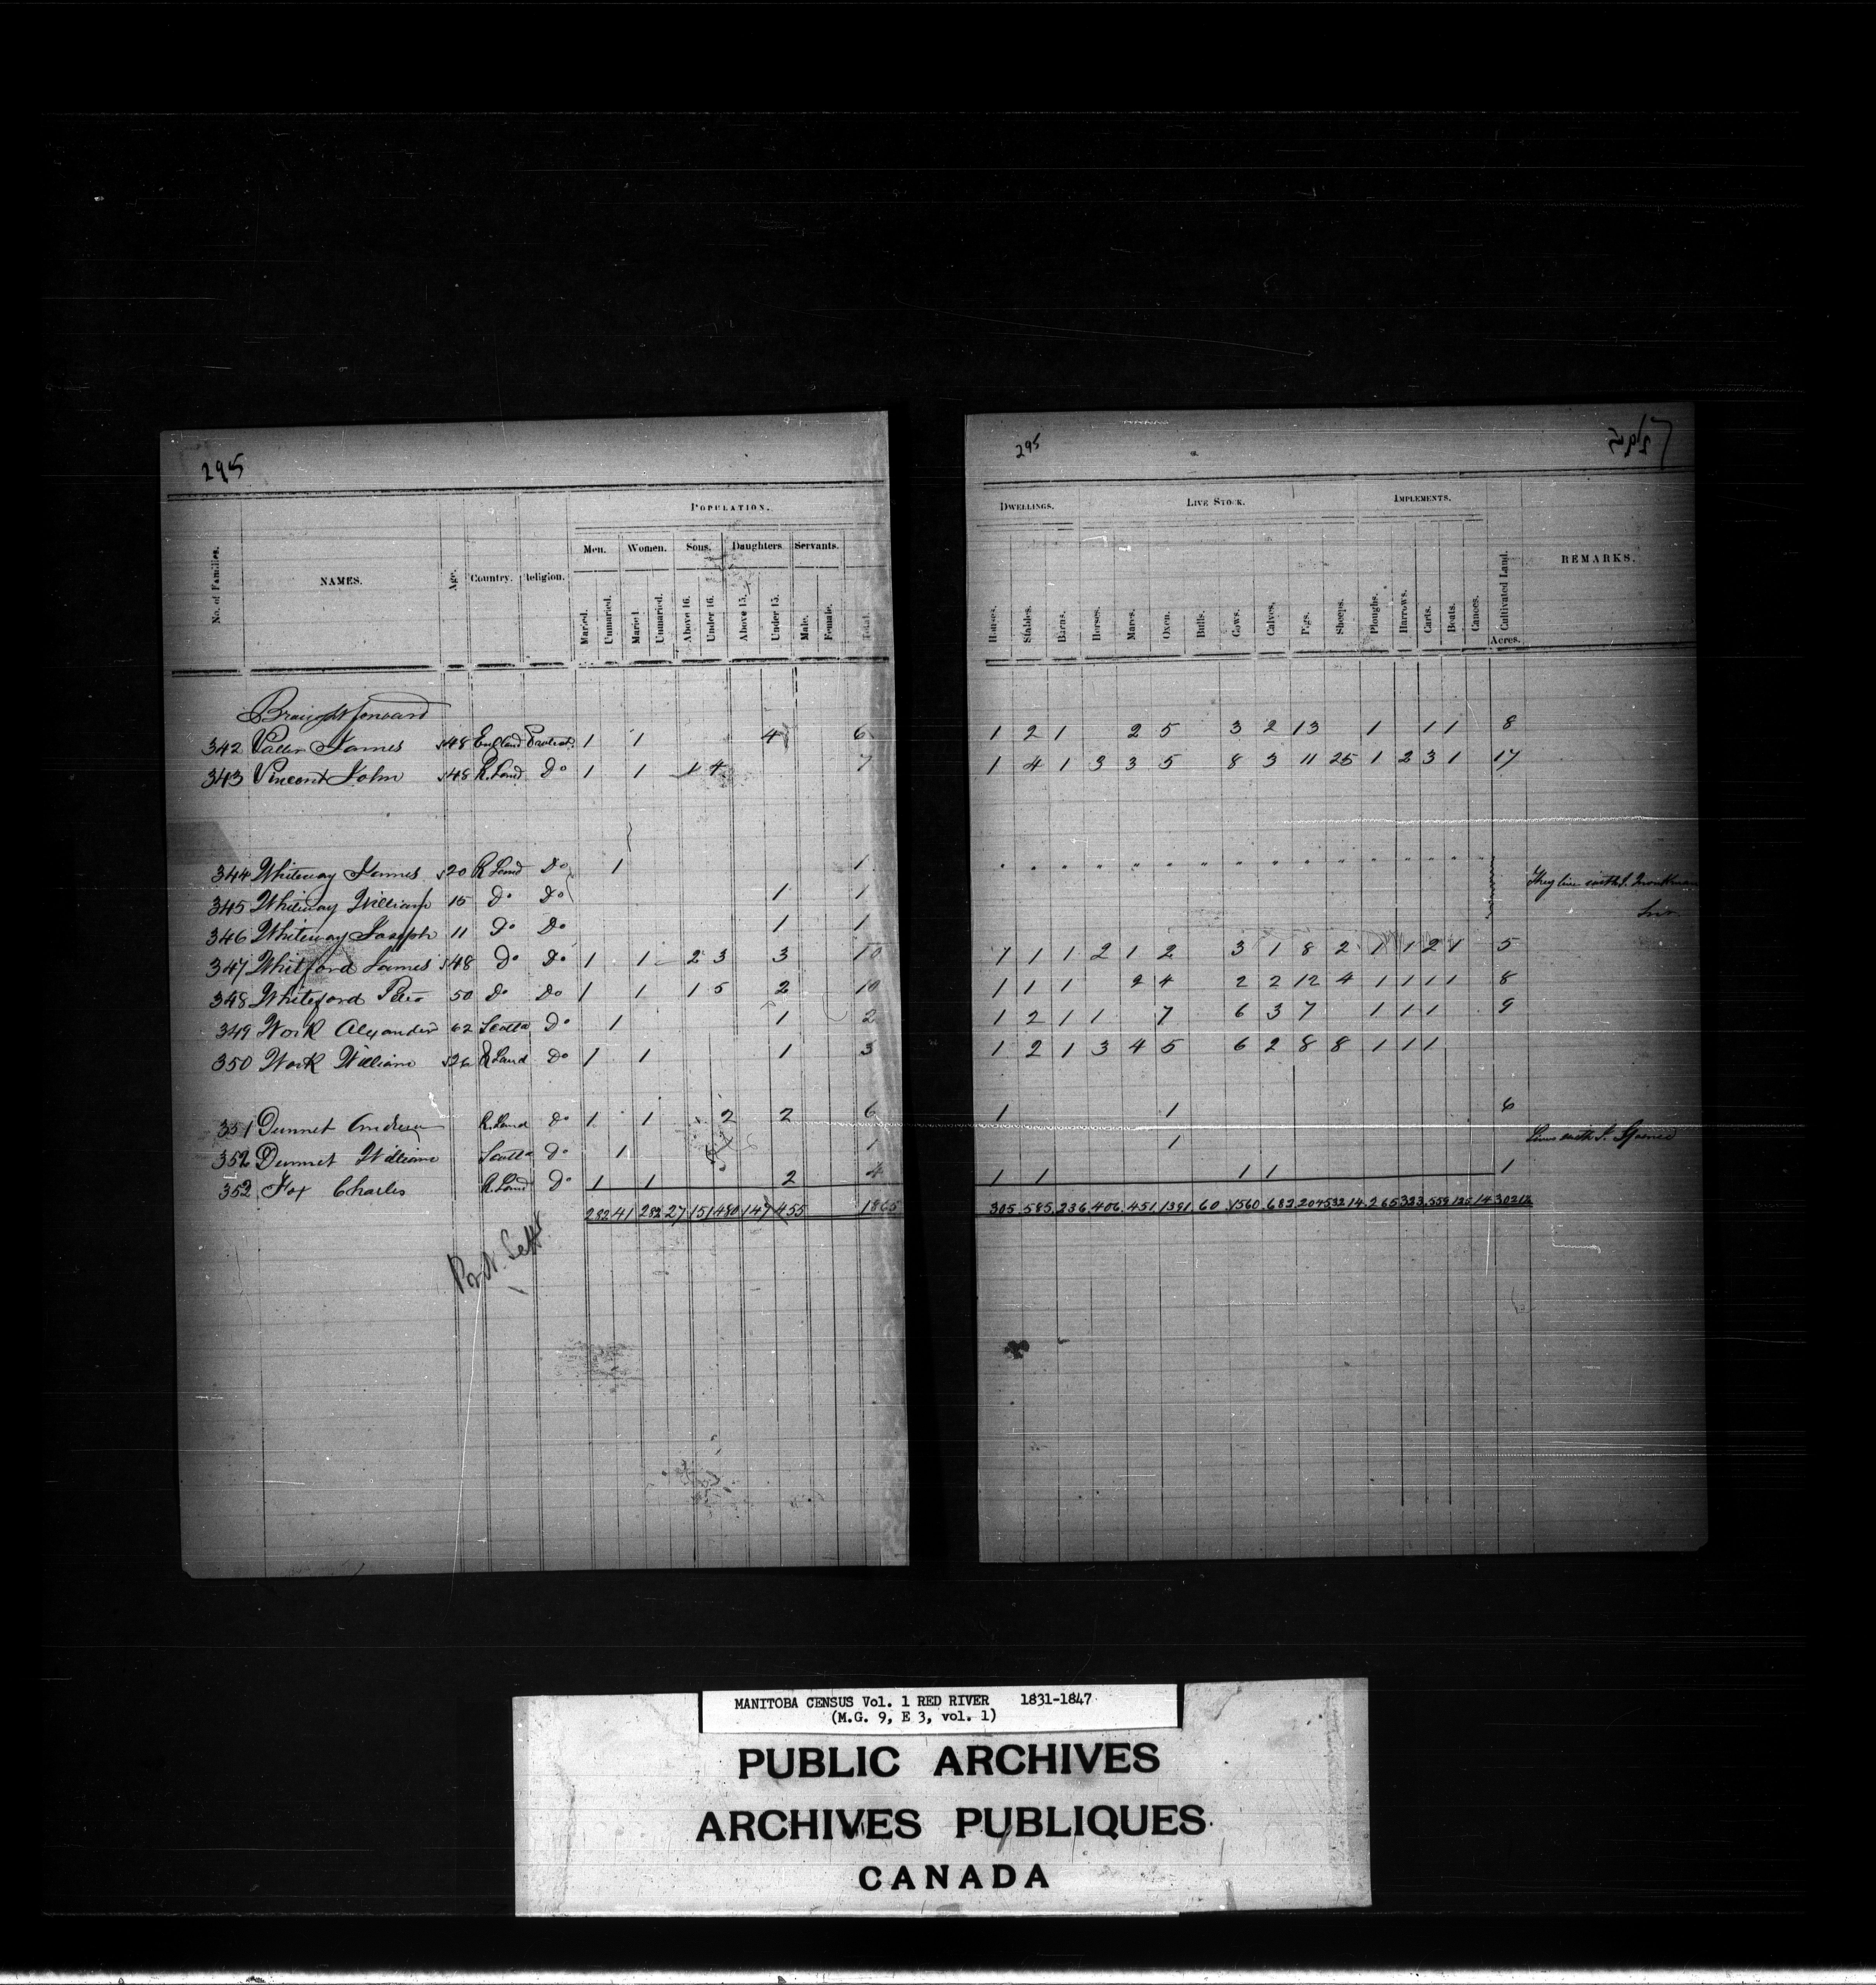 295
No. of Families.
NAMES.
Age.
Country.
Religion.
POPULATION.
Men.
Women.
Sons.
Daughters
Servants.
Maried.
Unmaried.
Maried
Unmaried.
Above 16.
Under 16.
Above 15.
Under 15.
Male.
Female.
Total.
Brought forward
342 James 48 England Protest. 1 1 4 6
343 Vincent John 48 R. Land Do 1 1 1 4 7
344 Whiteway James 20 R Land Do 1 1
345 Whiteway William 15 Do Do 1 1
346 Whiteway Joseph 11 Do Do 1 1
347 Whitford James 48 Do Do 1 1 2 3 3 10
348 Whiteford Peter 50 Do Do 1 1 1 5 2 10
349 Work Alexander 62 Scotld Do 1 1 2
350 Work William 26 R Land Do 1 1 1 3
351 Dunnet Andrew R. Land Do 1 1 2 2 6
352 Dunnet William Scotld Do 1 1
353 Fox Charles R. Land Do 1 1 2 4
282 41 282 27 151 480 147 455 1865
295
295
DWELLINGS.
LIVE STOCK.
IMPLEMENTS.
REMARKS.
Houses.
Stables.
Barns.
Horses.
Mares.
Oxen.
Bulls.
Cows.
Calves,
Pigs.
Sheeps.
Ploughs.
Harrows.
Carts.
Boats.
Canoes.
Cultivated Land.
Acres.
1 2 1 2 5 3 2 13 1 1 1 8
1 4 1 3 3 5 8 3 11 25 1 2 3 1 17
They live with
1 1 1 2 1 2 3 1 8 2 1 1 2 1 5
1 1 1 2 4 2 2 12 4 1 1 1 1 8
1 2 1 1 7 6 3 7 1 1 1 9
1 2 1 3 4 5 6 2 8 8 1 1 1
1 1 6
1 Lives with J. Spence
1 1 1 1 1
305 585 236 406 451 1391 60 1560 682
MANITOBA CENSUS Vol. 1 RED RIVER 1831-1847
(M.G. 9, E 3, vol. 1)
PUBLIC ARCHIVES
ARCHIVES PUBLIQUES
CANADA